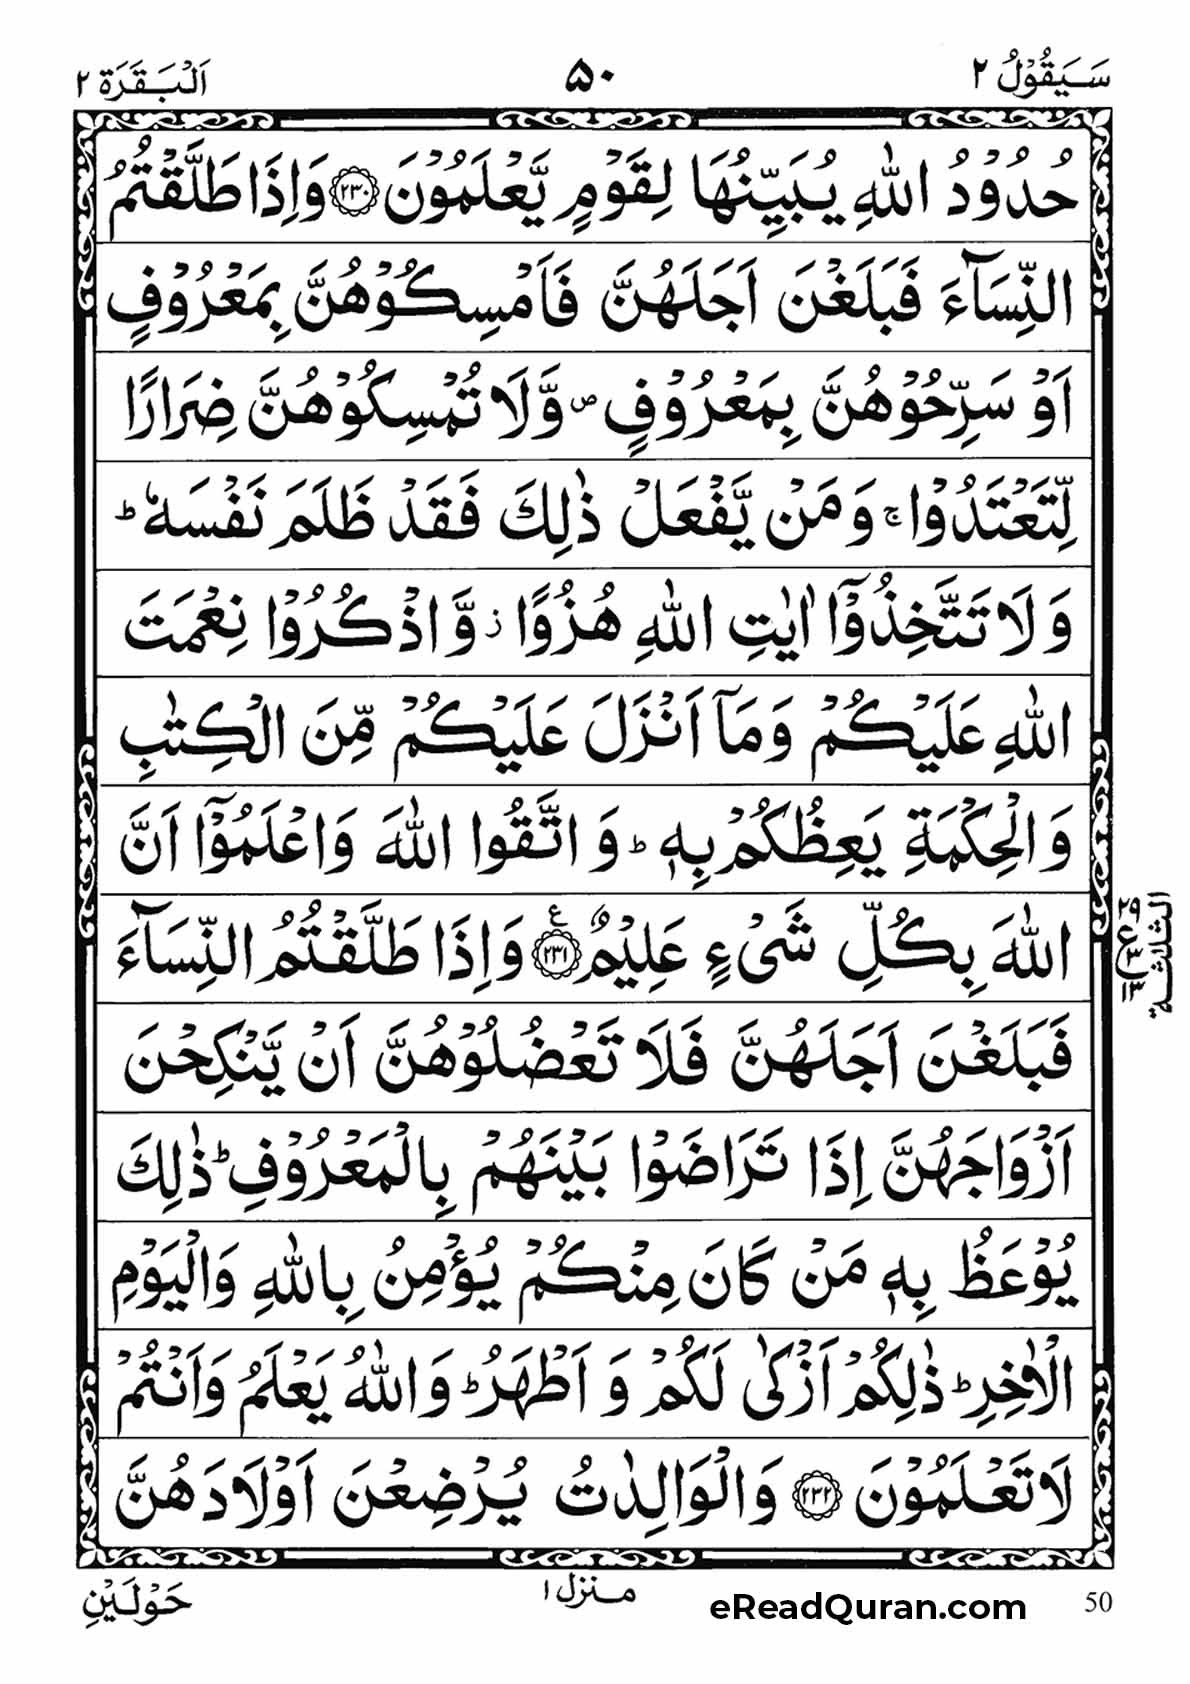 سَيَقُوْلُ ٢
۵۰
اَلْبَقَرَة ٢
حُدُوْدُ اللّٰهِ يُبَيِّنُهَا لِقَوْمٍ يَّعْلَمُوْنَ ﴿٢٣٠﴾ وَاِذَا طَلَّقْتُمُ
النِّسَآءَ فَبَلَغْنَ اَجَلَهُنَّ فَاَمْسِكُوْهُنَّ بِمَعْرُوْفٍ
اَوْ سَرِّحُوْهُنَّ بِمَعْرُوْفٍ ۪ وَّلَا تُمْسِكُوْهُنَّ ضِرَارًا
لِّتَعْتَدُوْا ۚ وَمَنْ يَّفْعَلْ ذٰلِكَ فَقَدْ ظَلَمَ نَفْسَهٗ ؕ
وَلَا تَتَّخِذُوْۤا اٰيٰتِ اللّٰهِ هُزُوًا ؗ وَّاذْكُرُوْا نِعْمَتَ
اللّٰهِ عَلَيْكُمْ وَمَاۤ اَنْزَلَ عَلَيْكُمْ مِّنَ الْكِتٰبِ
وَالْحِكْمَةِ يَعِظُكُمْ بِهٖ ؕ وَاتَّقُوا اللّٰهَ وَاعْلَمُوْۤا اَنَّ
اللّٰهَ بِكُلِّ شَیْءٍ عَلِيْمٌ ﴿٢٣١﴾ ع وَاِذَا طَلَّقْتُمُ النِّسَآءَ
فَبَلَغْنَ اَجَلَهُنَّ فَلَا تَعْضُلُوْهُنَّ اَنْ يَّنْكِحْنَ
اَزْوَاجَهُنَّ اِذَا تَرَاضَوْا بَيْنَهُمْ بِالْمَعْرُوْفِ ؕ ذٰلِكَ
يُوْعَظُ بِهٖ مَنْ كَانَ مِنْكُمْ يُؤْمِنُ بِاللّٰهِ وَالْيَوْمِ
الْاٰخِرِ ؕ ذٰلِكُمْ اَزْكٰی لَكُمْ وَاَطْهَرُ ؕ وَاللّٰهُ يَعْلَمُ وَاَنْتُمْ
لَا تَعْلَمُوْنَ ﴿٢٣٢﴾ وَالْوَالِدٰتُ يُرْضِعْنَ اَوْلَادَهُنَّ
الثلاثة
حَوْلَيْنِ
منزل ١
eReadQuran.com
50